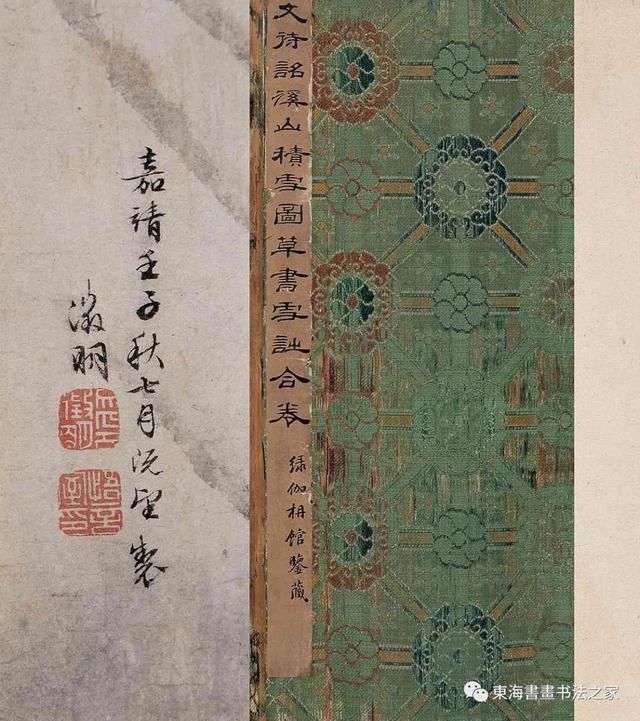 文待詔溪山積雪圖草書雪詠合卷
綠伽枏館鑒藏
嘉靖壬子秋七月既望製
徵明
悟言室印
東海書畫书法之家